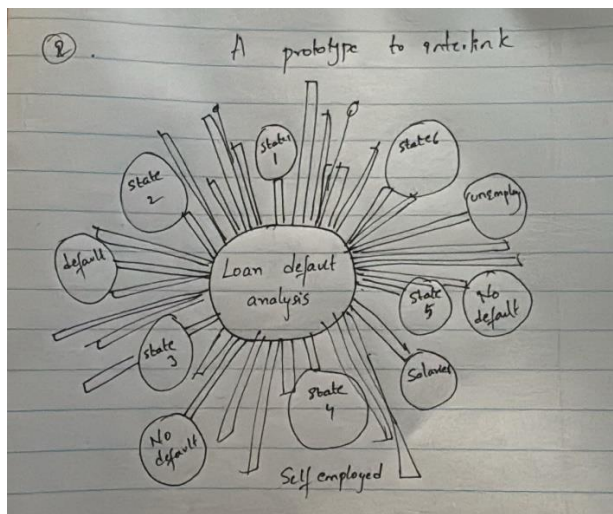 2.
A prototype to interlink
State 1
State 6
State 2
unemploy
default
Loan default
analysis
State 5
No
default
State 3
State 4
No
default
Self employed